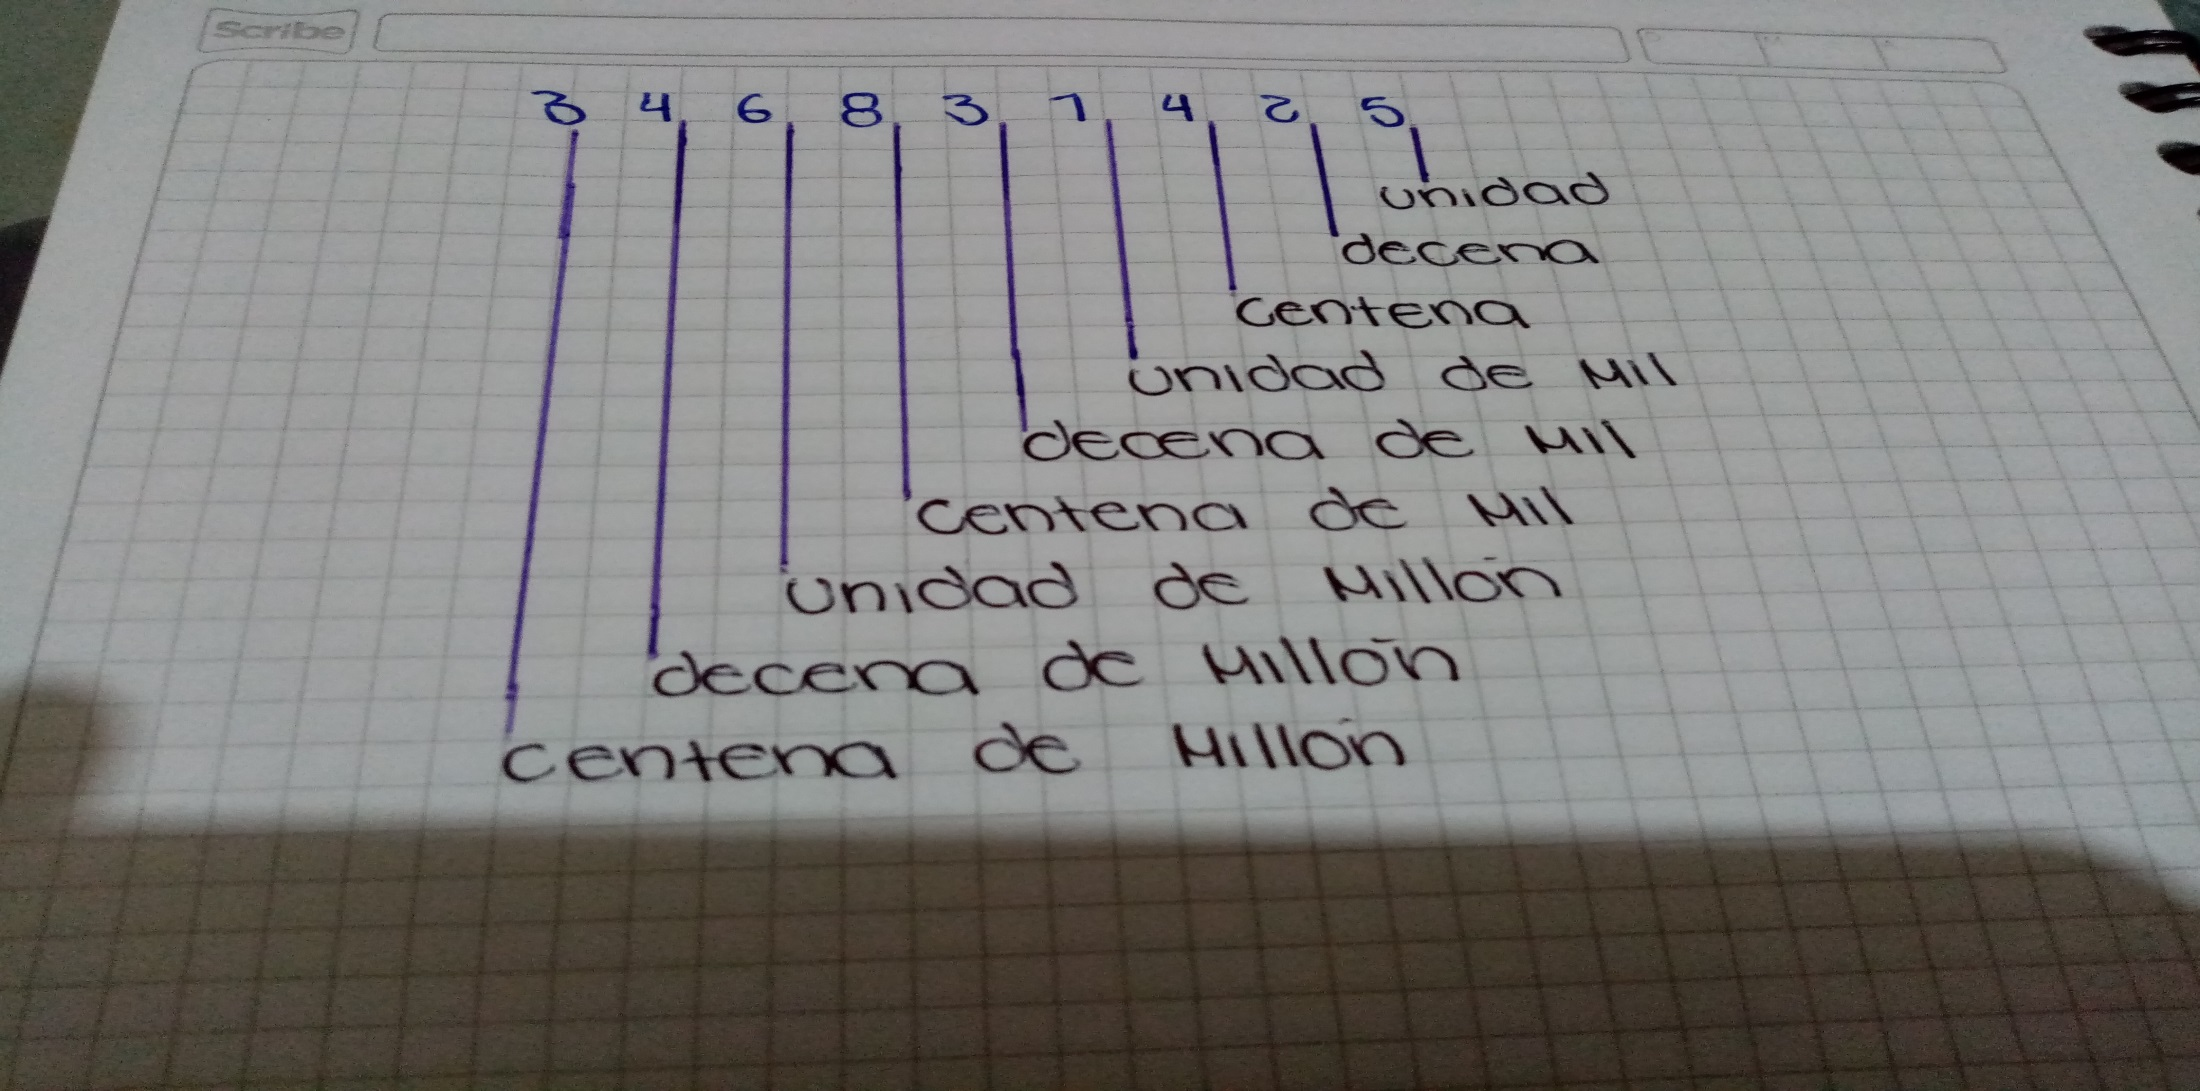 Scribe
3 4 6 8 3 7 4 2 5
unidad
decena
centena
unidad de Mil
decena de Mil
centena de Mil
unidad de Millón
decena de Millón
centena de Millón